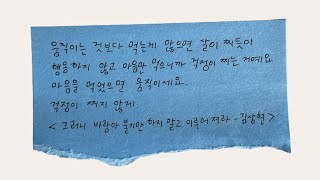 움직이는 것보다 먹는게 많으면 살이 찌듯이
행동하지 않고 마음만 먹으니까 걱정이 찌는거예요
마음을 먹었으면 움직이세요.
걱정이 찌지 않게.
< 그러니 바람아 불기만 하지 말고 이루어져라 - 김상현 >